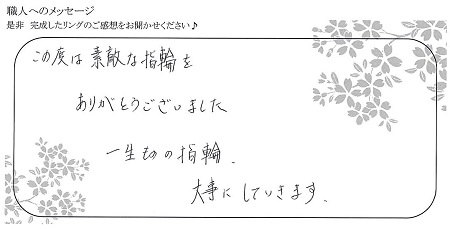 職人へのメッセージ
是非 完成したリングのご感想をお聞かせください♪
この度は素敵な指輪を
ありがとうございました
一生もの指輪、
大事にしていきます。